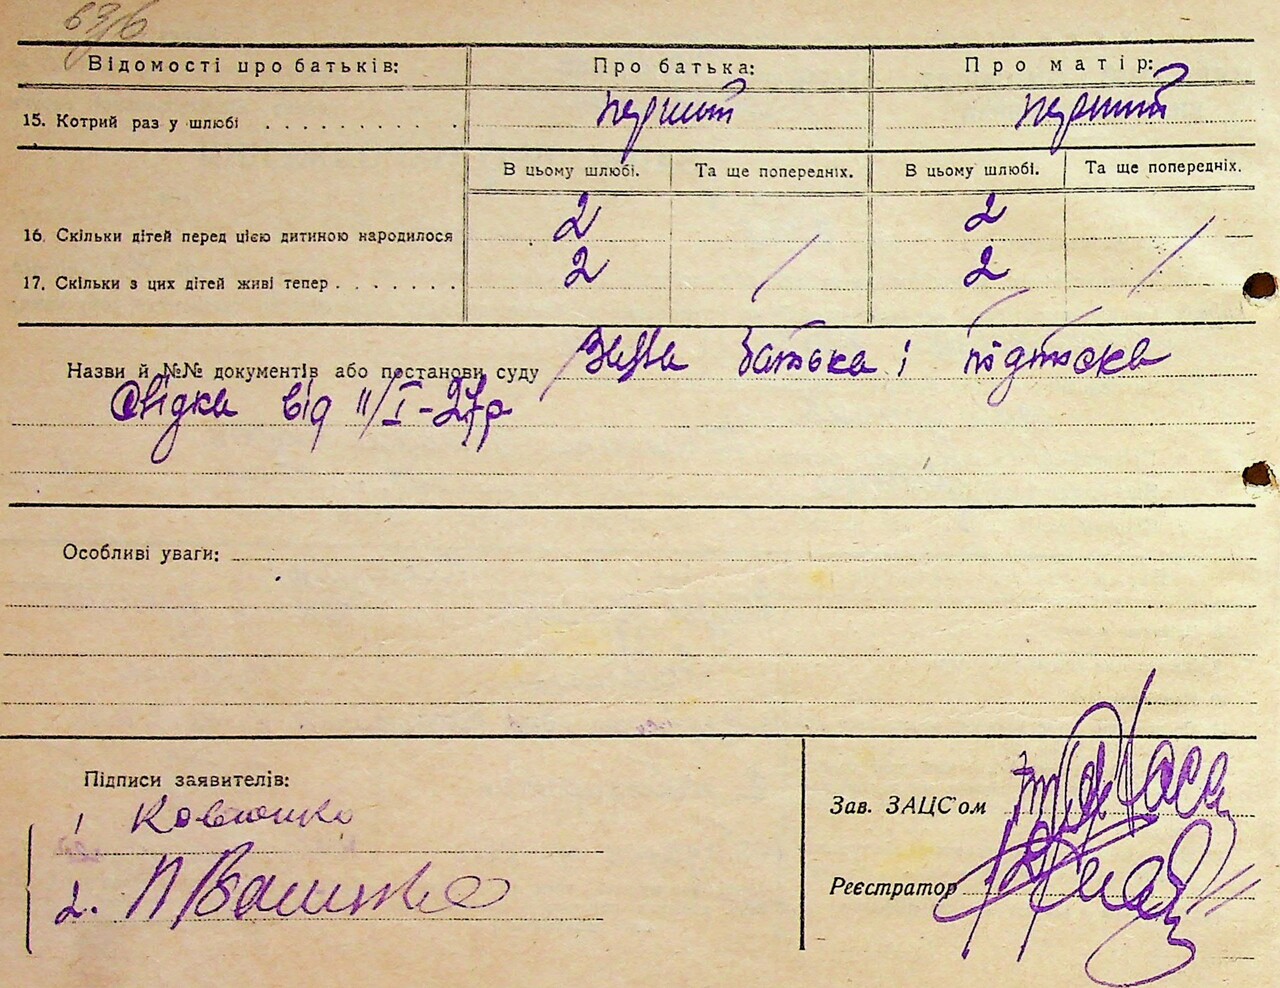 Відомості про батьків: Про батька: Про матір:
15. Котрий раз у шлюбі перший перший
В цьому шлюбі. Та ще попередніх. В цьому шлюбі. Та ще попередніх.
16. Скільки дітей перед цією дитиною народилося 2 2
17. Скільки з цих дітей живі тепер 2 / 2 /
Назви й №№ документів або постанови суду Заява батька і
Свідка від 11/I-27р
Особливі уваги:
Підписи заявителів:
1
2.
Зав. ЗАЦС'ом
Реєстратор